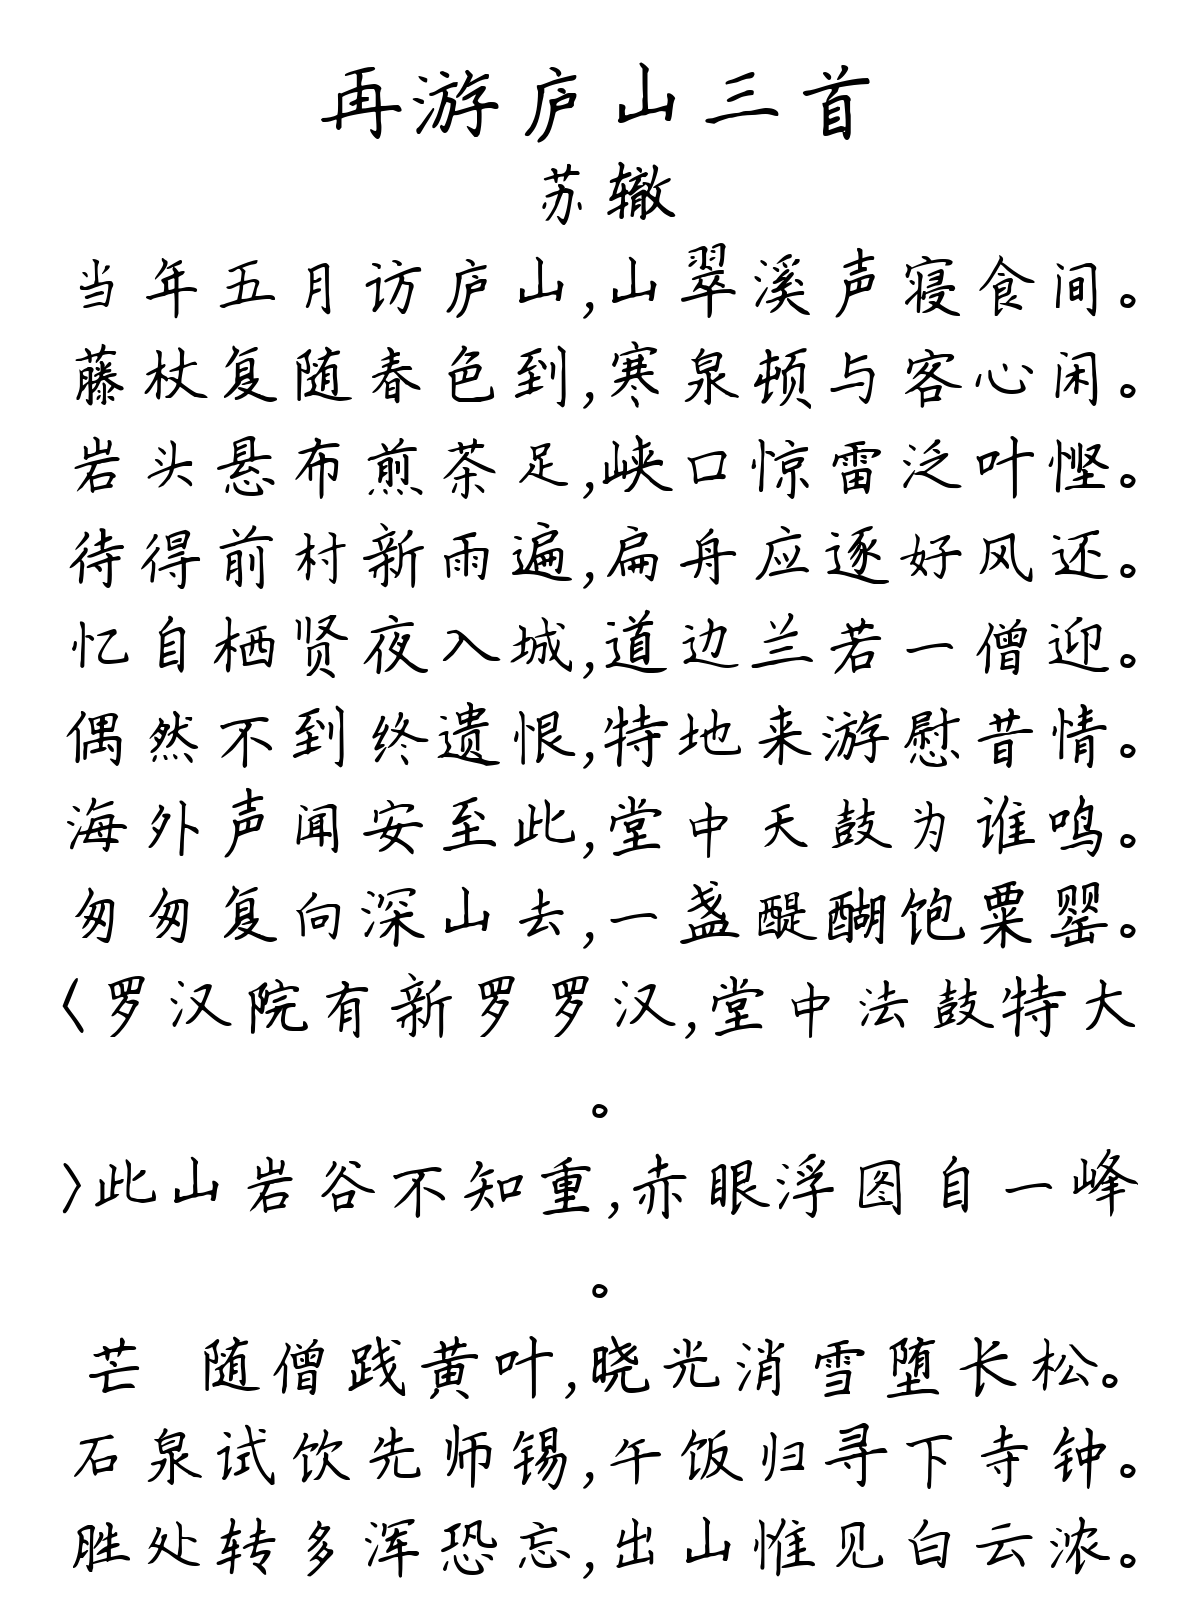 再游庐山三首
苏辙
当年五月访庐山,山翠溪声寝食间。
藤杖复随春色到,寒泉顿与客心闲。
岩头悬布煎茶足,峡口惊雷泛叶悭。
待得前村新雨遍,扁舟应逐好风还。
忆自栖贤夜入城,道边兰若一僧迎。
偶然不到终遗恨,特地来游慰昔情。
海外声闻安至此,堂中天鼓为谁鸣。
匆匆复向深山去,一盏醍醐饱粟罂。
〈罗汉院有新罗罗汉,堂中法鼓特大
。
〉此山岩谷不知重,赤眼浮图自一峰
。
芒 随僧践黄叶,晓光消雪堕长松。
石泉试饮先师锡,午饭归寻下寺钟。
胜处转多浑恐忘,出山惟见白云浓。